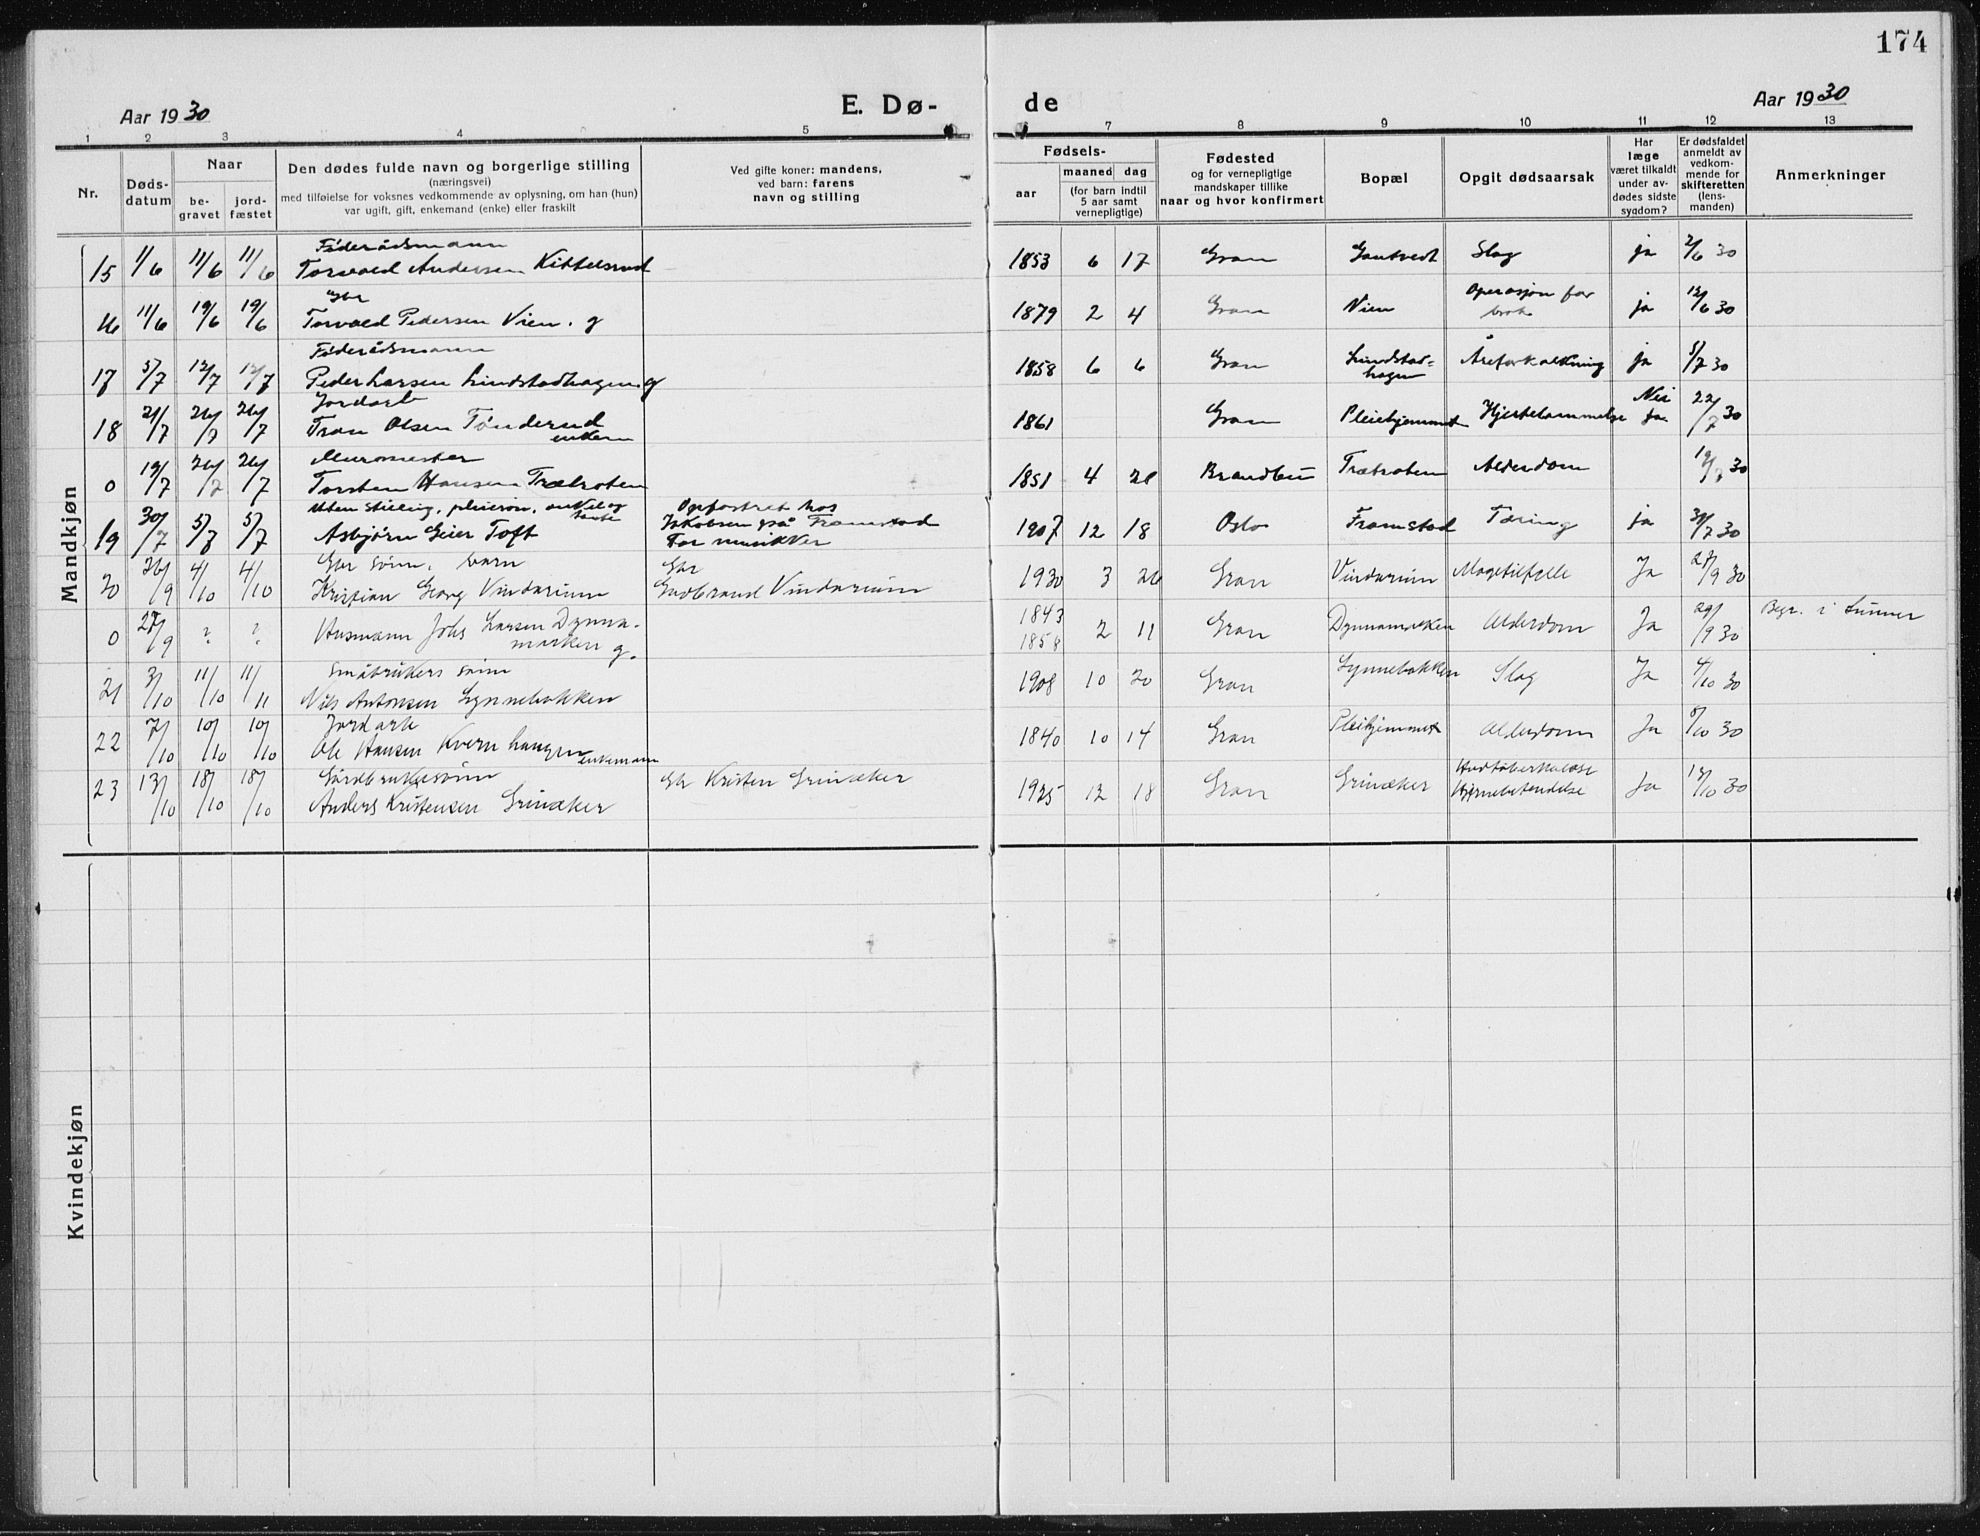 174
Aar 1930
E. Dø-
de
Aar 1930
1 2 3 4 5 7 8 9 10 11 12 13
Nr.
Døds-
datum
Naar
be-
gravet
jord-
fæstet
Den dødes fulde navn og borgerlige stilling
(næringsvei)
med tilføielse for voksnes vedkommende av oplysning, om han (hun)
var ugift, gift, enkemand (enke) eller fraskilt
Ved gifte koner: mandens,
ved barn: farens
navn og stilling
Fødsels-
aar
maaned dag
(for barn indtil
5 aar samt
vernepligtige)
Fødested
og for vernepligtige
mandskaper tillike
naar og hvor konfirmert
Bopæl
Opgit dødsaarsak
Har
læge
været tilkaldt
under av-
dødes sidste
sygdom?
Er dødsfaldet
anmeldt av
vedkom-
mende for
skifteretten
(lens-
manden)
Anmerkninger
Mandkjøn
Føderådsmann
15 1/6 11/6 11/6 Torvald Andersen Kittelsrud 1853 6 17 Gran Slag ja 2/6 30
Gbr Operasjon for
16 11/6 19/6 19/6 Torvald Pedersen Vien. g 1879 2 4 Gran Vien brok ja 12/6 30
Føderådsmann
17 5/7 12/7 12/7 Peder Larsen Lindstadhagen g 1858 6 6 Gran Lindstad-
hagen Åreforkalkning ja 5/7 30
Jordarb Nei
18 21/7 26/7 26/7 Tron Olsen Tønderud
enkem 1861 Gran Pleiehjemmet Hjertelammelse ja 22/7 30
Muromester
0 19/7 26/7 26/7 Torsten Hansen Træhaten 1851 4 Brandbu Alderdom 30
Uten stilling, pleiesøn, onkel og
tante Opfostret hos
19 30/7 5/7 Asbjørn Geier Toft Jakobsen på Framstad
Far musikker 1907 12 18 Oslo Framstad Tæring ja 31/7 30
Gbr sønn, barn Gbr
20 26/9 4/10 4/10 Kristian Georg Vindorium Gudbrand Vindorium 1930 3 26 Gran Vindorium Magetilfelle Ja 27/9 30
0 27/9 ? ? Husmann Johs Larsen Dynna-
marken g. 1843
1858 2 11 Gran Dynnamarken Alderdom Ja 29/9 30 Begr. i Lunner
Småbrukers sønn
21 3/10 11/10 11/11 Nils Antonsen Lynnebakken 1908 10 20 Gran Lynnebakken Slag Ja 4/10 30
Jordarb
22 7/10 10/10 10/10 Ole Hansen Kvernhaugen
enkemann 1840 10 14 Gran Pleihjemmet Alderdom Ja 8/10 30
Gårdbrukersønn
23 13/10 18/10 18/10 Anders Kristensen Grinaker Gbr Kristen Grinaker 1925 12 18 Gran Grinaker Hudtuberkulose
Hjernebetendelse Ja 30
Kvindekjøn